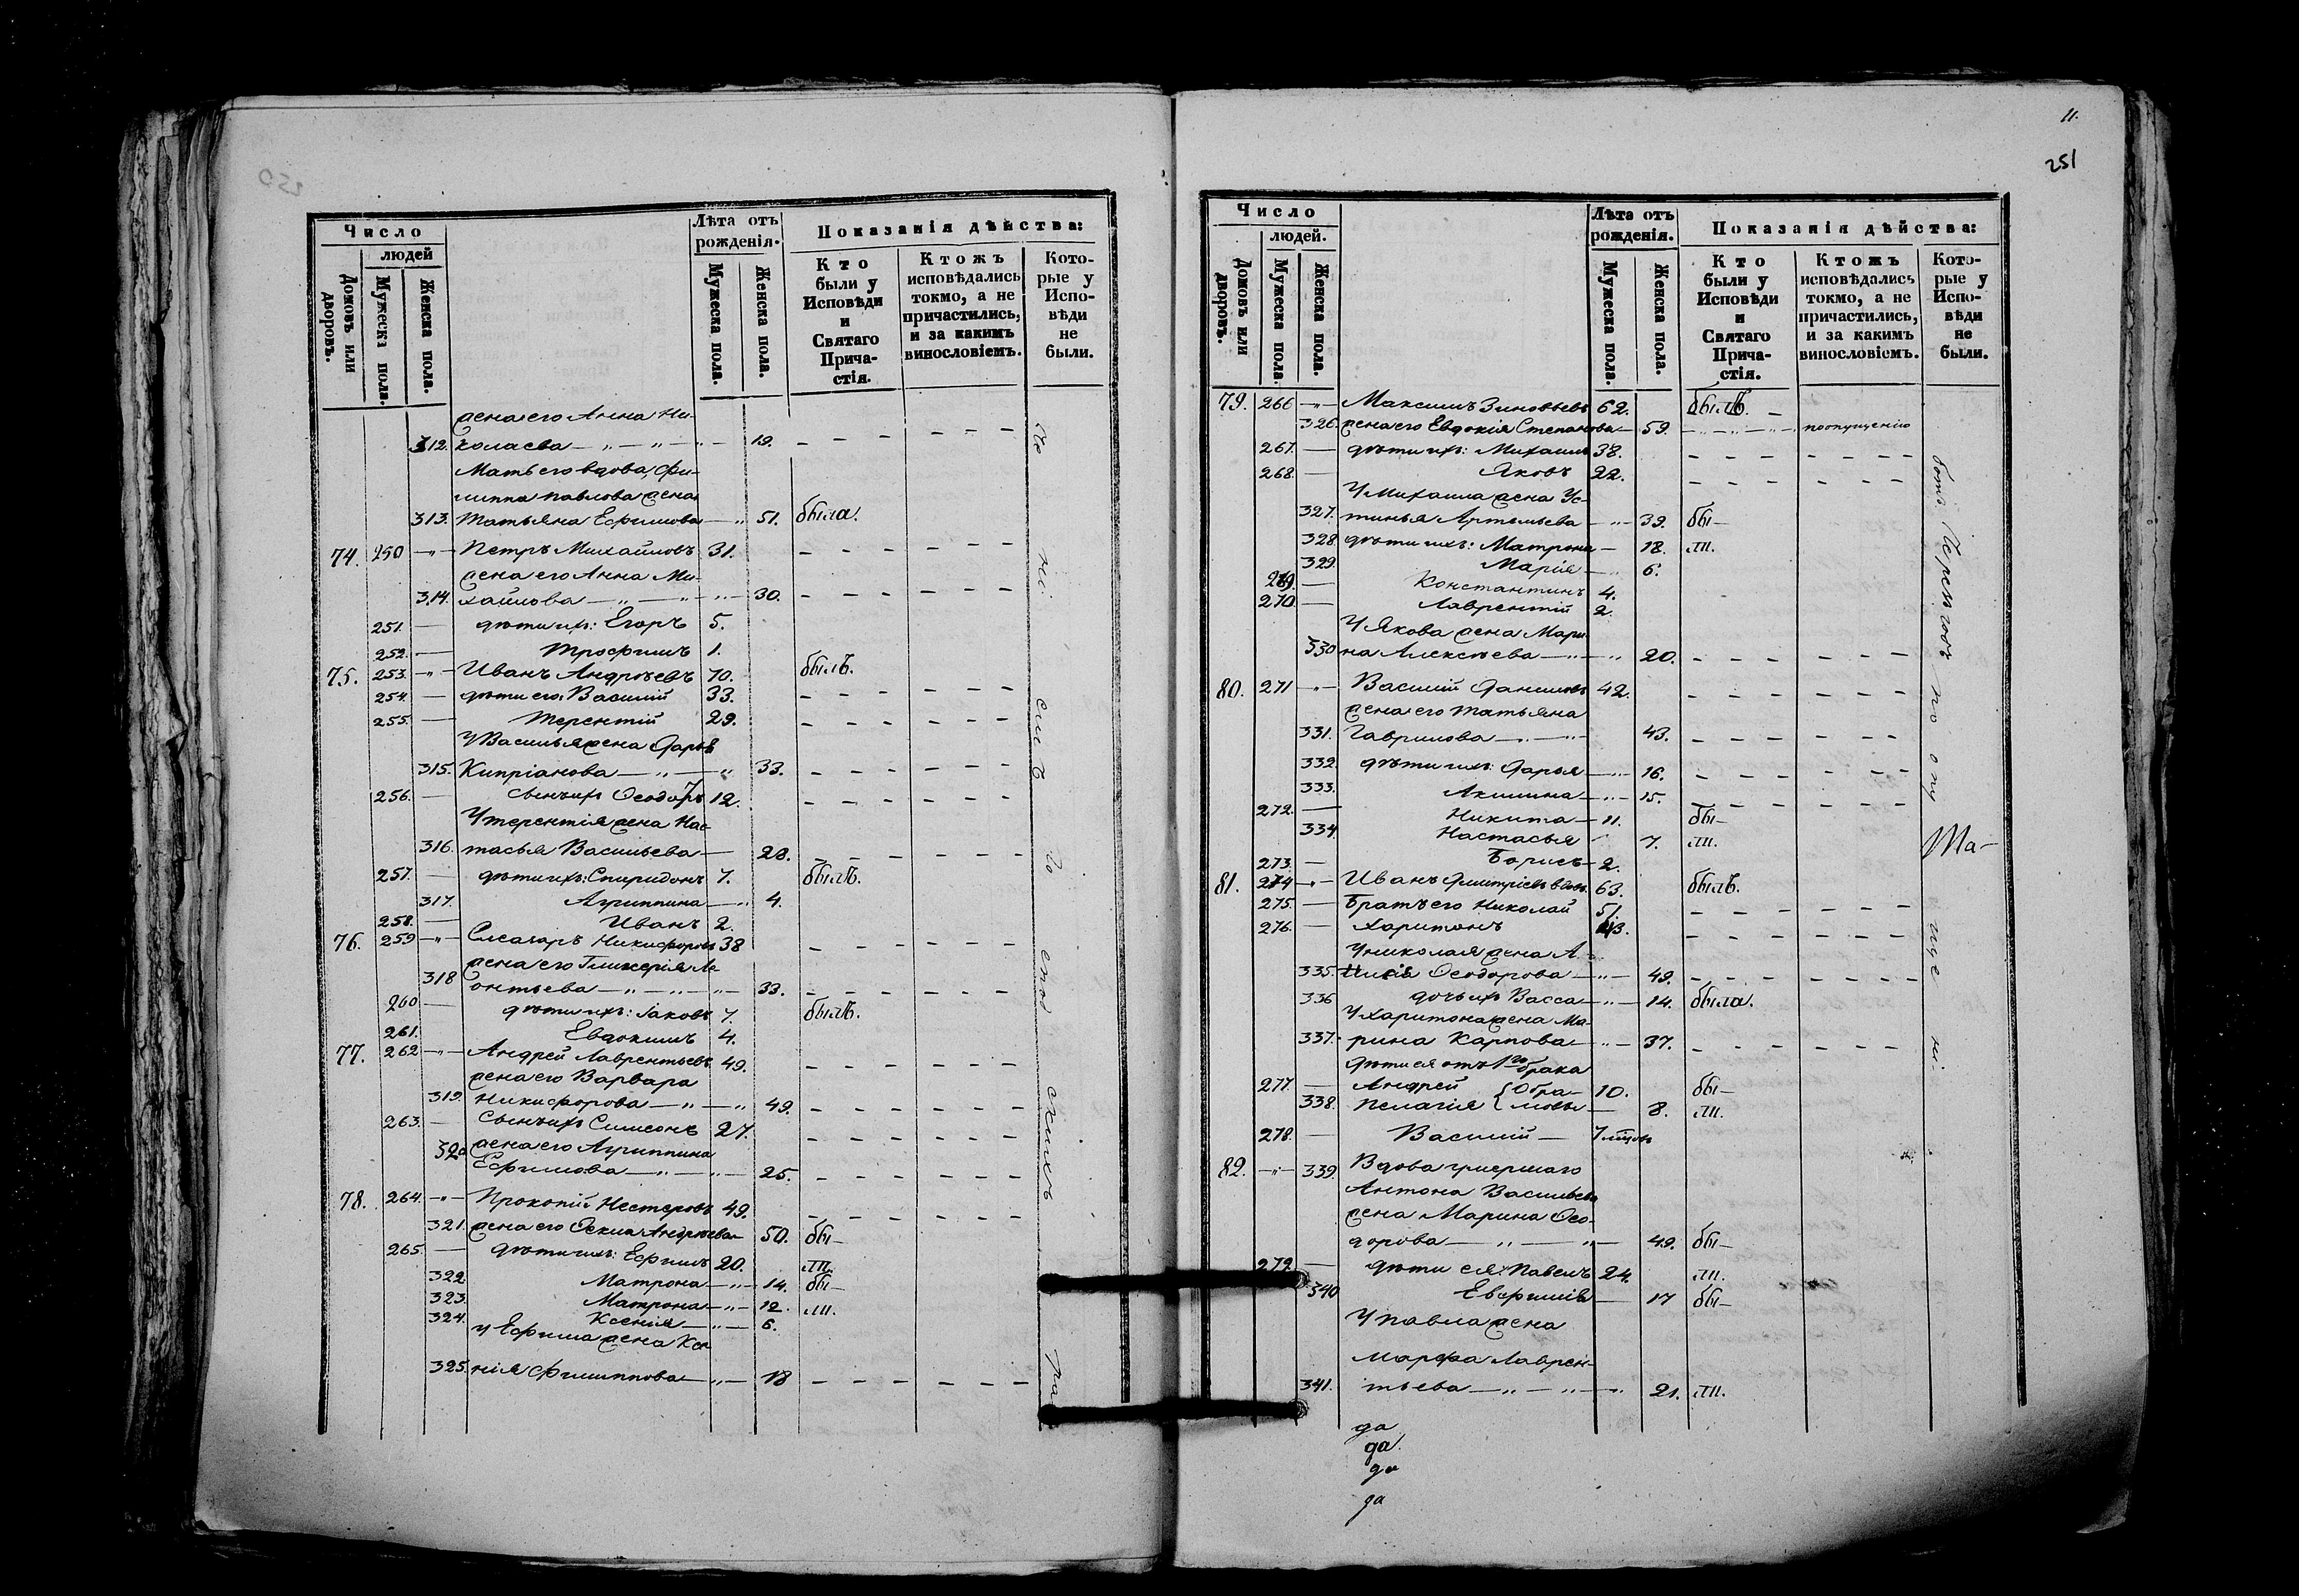 11.
251
Число
людей
Домовъ или дворовъ.
Мужеска пола.
Женска пола.
Лѣта отъ рожденія.
Мужеска пола.
Женска пола.
Показанія дѣйства:
Кто были у Исповѣди и Святаго Прича-стія.
Ктожъ исповѣдались токмо, а не причастились, и за какимъ винословіемъ.
Кото-рые у Испо-вѣди не были.
жена его Анна Ни-
312. колаева — „ — „ — „ — 19. — — — — — —
Мать его вдова, Фи-
липпа Павлова жена
313. Татьяна Ефимова — „ 51. была.
74. 250 — „ — Петръ Михайловъ 31. — — — — — —
жена его Анна Ми-
314. хайлова — „ — „ — „ — 30. — — — — — —
251. — дѣти ихъ: Егоръ 5.
252. — Трофимъ 1.
75. 253. — „ — Иванъ Андреевъ 70. былъ.
254. — дѣти его: Василий 33. — — — — — —
255. — Терентій 29. — — — — — —
У Василья жена Дарья
315. Кипріанова — „ — „ 33. — — — — — —
256. — Сынъ ихъ Ѳеодоръ 12. — — — — — —
У Терентія жена Нас-
316. тасья Васильева — 28. — — — — — —
257. — дѣти ихъ: Спиридонъ 7. былъ.
317. Агриппина — „ 4.
258. — Иванъ 2.
76. 259 — „ — Никифоровъ 38 — — — — — —
жена его Гликерія Ле-
318 онтьева — „ — „ — „ — 33. — — — — — —
260 — дѣти ихъ: Іаковъ 7. былъ.
261. Евдокимъ 4.
77. 262 — „ — Андрей Лаврентьевъ 49. — — — — — —
жена его Варвара
319. Никифорова — „ — „ 49. — — — — — —
263. — Сынъ ихъ Симеонъ 27. — — — — — —
320 жена его Агриппина
Ефимова — „ — „ — 25. — — — — — —
78. 264. — „ — Прокопій Нестеровъ 49. — — — — — —
321. жена его Андреева 50. бы-
265. — дѣти ихъ: Ефимъ 20. ли.
322. Матрона — „ — 14. бы-
323. Матрона — „ — 12. ли.
324. Ксенія — „ — 6.
у Ефима жена Ксе-
325. нія Филиппова — „ — 18 — — — — — —
Число
людей.
Домовъ или дворовъ.
Мужеска пола.
Женска пола.
Лѣта отъ рожденія.
Мужеска пола.
Женска пола.
Показанія дѣйства:
Кто были у Исповѣди и Святаго Прича-стія.
Ктожъ исповѣдались токмо, а не причастились, и за какимъ винословіемъ.
Кото-рые у Испо-вѣди не были.
79. 266 — „ — Максимъ Зиновьевъ 62. былъ. —
326. жена его Евдокія Степанова — 59. — „ — „ — „ — по опущению
267. — дѣти ихъ: Михаилъ 38. — — — — — —
268. — Яковъ 22. — — — — — —
У Михаила жена Ус-
327. тинья Артемьева — „ — 39. бы-
328. дѣти ихъ: Матрона — 18. ли.
329. Марія — „ 6.
269. — Константинъ 4.
270. — Лаврентій 2.
У Якова жена Мари-
330 на Алексѣева — „ — „ 20. — — — — — —
80. 271 — „ — Василий Даниловъ 42. — — — — — —
жена его Татьяна
331. Гаврилова — „ — „ 43. — — — — — —
332. дѣти ихъ: Дарья — „ — 16. — — — — — —
333. Акилина — „ — 15. — — — — — —
272. — Никита — 11. бы-
334. Настасья 7. ли.
273. — Борисъ — 2.
81. 274 — „ — Иванъ Дмитріевъ вдовъ 63. былъ.
275. — Братъ его Николай 51. — — — — — —
276. — Харитонъ 43. — — — — — —
У Николая жена
335. Ѳеодорова — „ — 49. — — — — — —
336 дочь ихъ Васса — „ — 14. была.
У Харитона жена Ма-
337. рина Карпова — „ — 37. — — — — — —
дѣти ея отъ 1го брака
277. — Андрей 10. бы-
338. Пелагія — 8. ли.
278. — Василій —
82. — „ — 339. Вдова умершаго
Антона Васильева
жена Марина Ѳео-
дорова — „ — „ — 49. бы-
279. — дѣти ея: Павелъ 24. ли.
340 Евфимія — 17 бы-
У Павла жена
Марфа Лаврен-
341. тьева — „ — „ — „ 21. ли.
да
да.
да
да